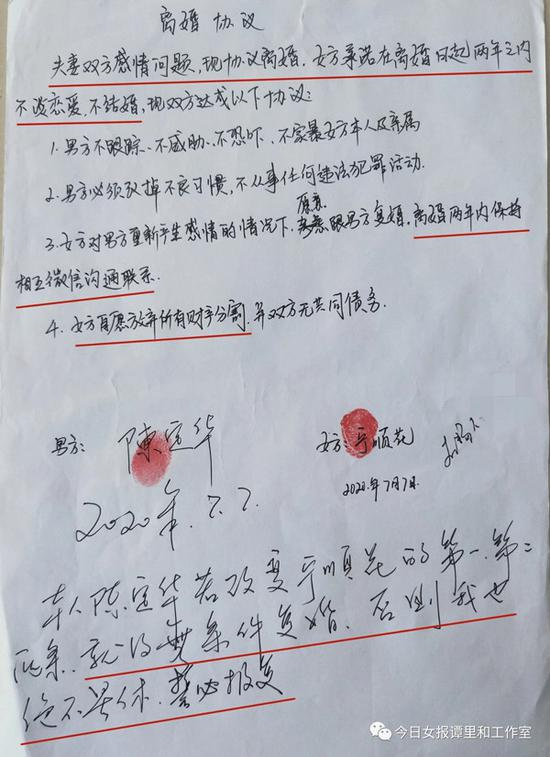 离婚协议
夫妻双方感情问题，现协议离婚，女方承诺在离婚日起两年之内
不谈恋爱，不结婚，现双方达成以下协议：
1. 男方不跟踪、不威胁、不恐吓、不家暴女方本人及亲属
2. 男方必须改掉不良习惯，不从事任何违法犯罪活动.
愿意
3. 女方对男方重新产生感情的情况下，跟男方复婚，离婚两年内保持
相互微信沟通联系.
4. 女方自愿放弃所有财产分割，并双方无共同债务.
男方： 陳定华
女方：宁顺花
2020年.7.7.
2020年7月7日.
本人陈定华若改变宁顺花的第一.第二
两条.就没無条件复婚、否则我也
绝不罢休.誓必报复
今日女报谭里和工作室